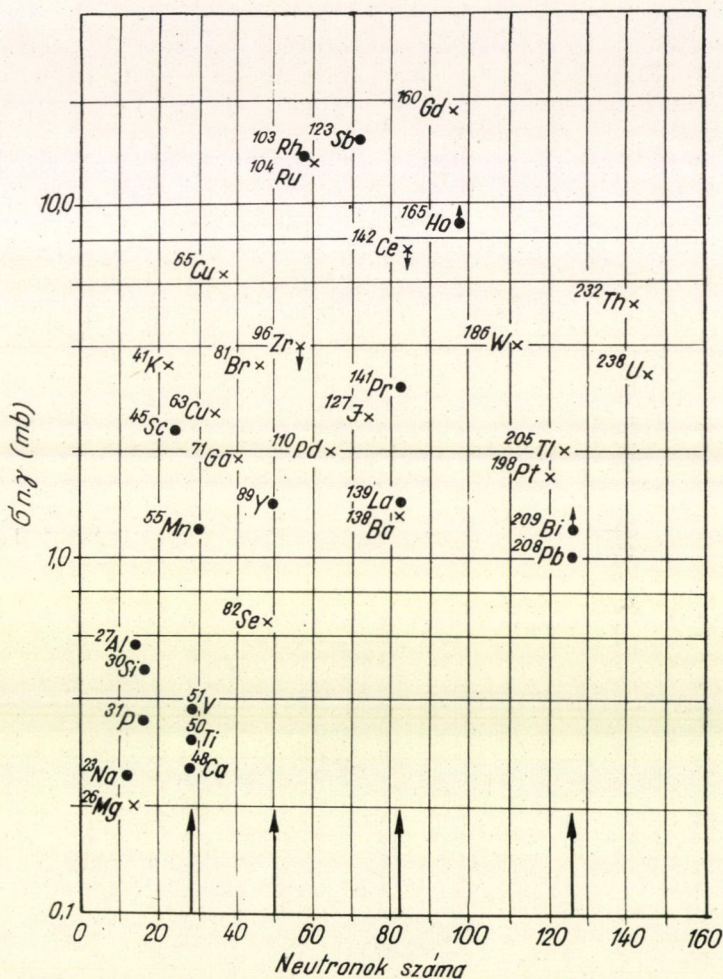 ¹⁶⁰Gd
¹⁰³Rh
¹²³Sb
¹⁰⁴Ru
10,0
¹⁶⁵Ho
¹⁴²Ce
⁶⁵Cu
²³²Th
⁹⁶Zr
¹⁸⁶W
⁴¹K
⁸¹Br
²³⁸U
¹⁴¹Pr
⁶³Cu
¹²⁷J
⁴⁵Sc
⁷¹Ga
¹¹⁰Pd
²⁰⁵Tl
¹⁹⁸Pt
σn.γ (mb)
⁸⁹Y
¹³⁹La
⁵⁵Mn
¹³⁸Ba
²⁰⁹Bi
1,0
²⁰⁸Pb
⁸²Se
²⁷Al
³⁰Si
⁵¹V
³¹P
⁵⁰Ti
⁴⁸Ca
²³Na
²⁶Mg
0,1
0 20 40 60 80 100 120 140 160
Neutronok száma